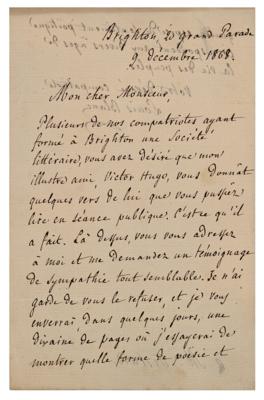 Brighton, 25 grand Parade
9 décembre 1868.
Mon cher Monsieur,
Plusieurs de nos compatriotes ayant
formé à Brighton une Société
littéraire, vous avez désiré que mon
illustre ami, Victor Hugo, vous donnât
quelques vers de lui que vous pussiez
lire en séance publique. C'est ce qu'il
a fait. Là dessus, vous vous adressez
à moi et me demandez un témoignage
de Sympathie tout semblable. Je n'ai
garde de vous le refuser, et je vous
enverrai, dans quelques jours, une
dizaine de pages où j'essayerai de
montrer quelle forme de poésie et